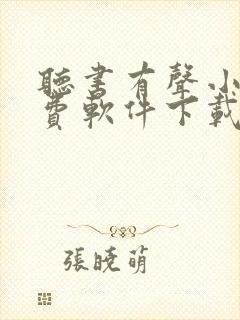 聽書有聲小
費軟件下載
張曉萌